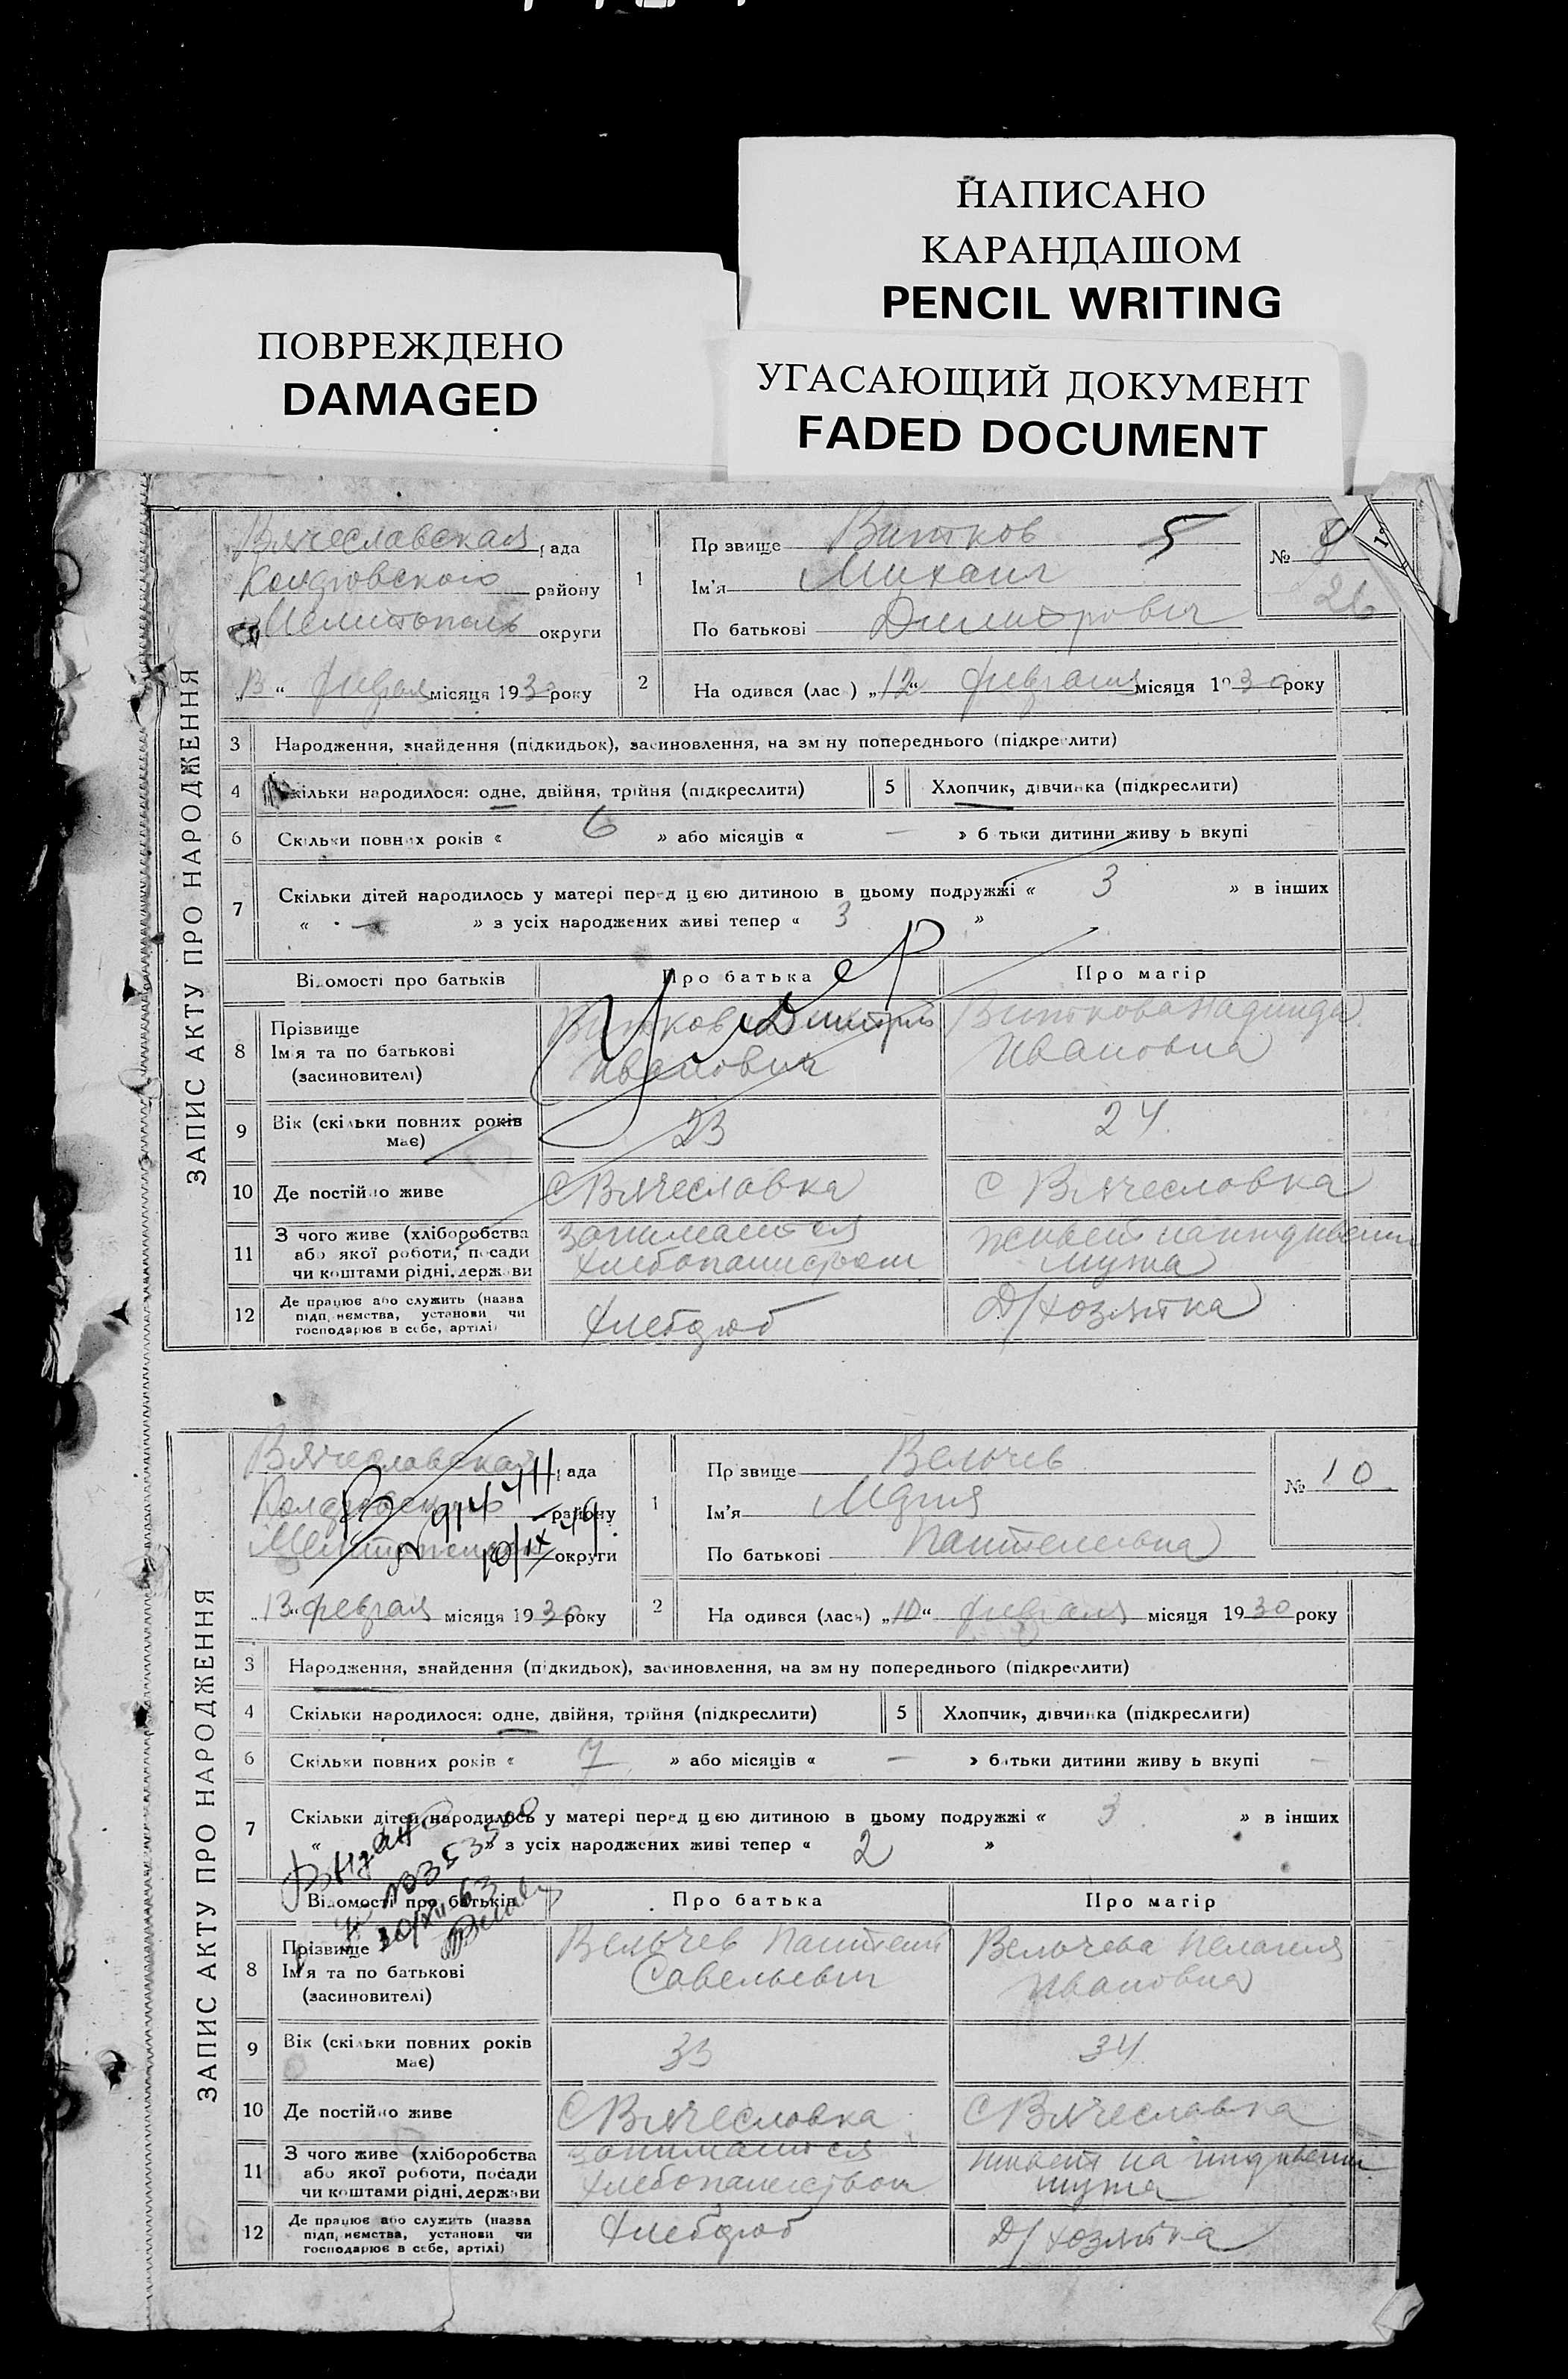 НАПИСАНО
КАРАНДАШОМ
PENCIL WRITING
ПОВРЕЖДЕНО
DAMAGED
УГАСАЮЩИЙ ДОКУМЕНТ
FADED DOCUMENT
ЗАПИС АКТУ ПРО НАРОДЖЕННЯ
Вячеславская рада
району
Мелитополь округи
„13“ февраля місяця 1930 року
1
Пр звище Витков 5
Ім'я Михаил
По батькові Димитрович
№
26
2 На одився (лас ) „12“ февраля місяця 1930 року
3 Народження, знайдення (підкидьок), засиновлення, на зм ну попереднього (підкреслити)
4 Скільки народилося: одне, двійня, трійня (підкреслити) 5 Хлопчик, дівчинка (підкреслити)
6 Скільки повних років « 6 » або місяців « — » б тьки дитини живу ь вкупі
7 Скільки дітей народилось у матері перед цією дитиною в цьому подружжі « 3 » в інших
« — » з усіх народжених живі тепер « 3 »
Відомості про батьків Про батька Про матір
8 Прізвище
Ім'я та по батькові
(засиновителі)
Витков Димитрий
Иванович
Виткова Надинда
Ивановна
Умер
9 Вік (скільки повних років
має) 23 24
10 Де постійно живе С Вячесловка С Вячесловка
11 З чого живе (хліборобства
або якої роботи, посади
чи коштами рідні, держави
занимается
хлебопашеством
живет на иждивении
мужа
12 Де працює або служить (назва
підприємства, установи чи
господарює в себе, артілі)
Хлебороб Д/хозяйка
ЗАПИС АКТУ ПРО НАРОДЖЕННЯ
Вячеславская рада
району
округи
„13“ февраля місяця 1930 року
1
Пр звище Вельчев
Ім'я Мария
По батькові Пантелеевна
№ 10
2 На одився (лась) „10“ февраля місяця 1930 року
3 Народження, знайдення (підкидьок), засиновлення, на зм ну попереднього (підкреслити)
4 Скільки народилося: одне, двійня, трійня (підкреслити) 5 Хлопчик, дівчинка (підкреслити)
6 Скільки повних років « 7 » або місяців « — » батьки дитини живу ь вкупі —
7 Скільки дітей народилось у матері перед цією дитиною в цьому подружжі « 3 » в інших
« » з усіх народжених живі тепер « 2 »
Выдано
Відомості про батьків Про батька Про матір
8 Прізвище
Ім'я та по батькові
(засиновителі)
Вельчев Пантелей
Савельевич
Вельчева Пелагия
Ивановна
9 Вік (скільки повних років
має) 33 34
10 Де постійно живе С Вячесловка С Вячеславка
11 З чого живе (хліборобства
або якої роботи, посади
чи коштами рідні, держави
занимается
хлебопашеством
живет на иждивении
мужа
12 Де працює або служить (назва
підприємства, установи чи
господарює в себе, артілі)
Хлебороб Д/хозяйка